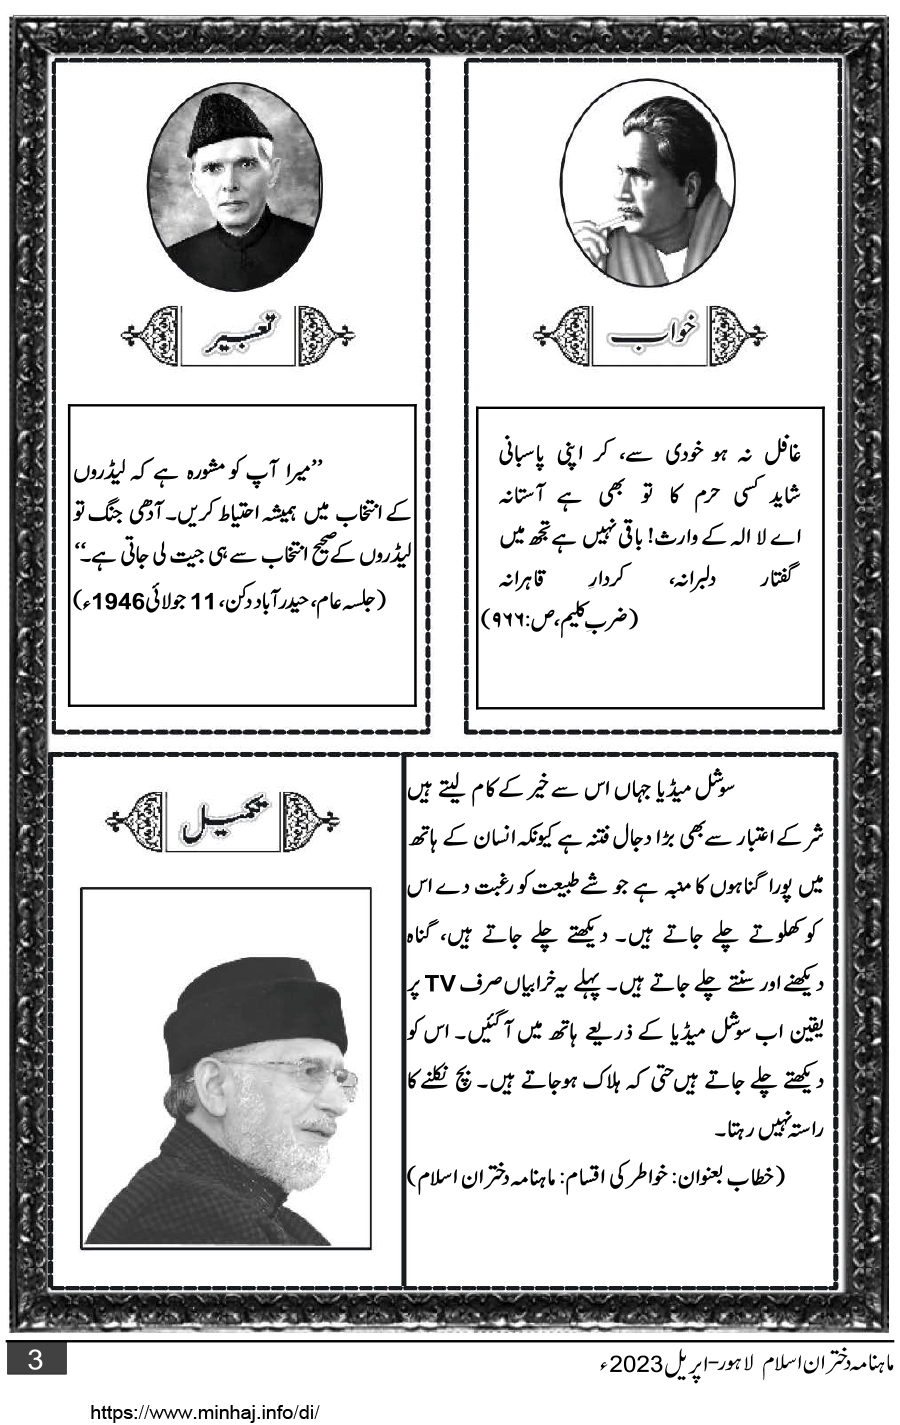 خواب
غافل نہ ہو خودی سے، کر اپنی پاسبانی
شاید کسی حرم کا تو بھی ہے آستانہ
اے لا الہ کے وارث! باقی نہیں ہے تجھ میں
گفتار دلبرانہ، کردارِ قاہرانہ
(ضربِ کلیم، ص:۹۶۶)
تعبیر
’’میرا آپ کو مشورہ ہے کہ لیڈروں
کے انتخاب میں ہمیشہ احتیاط کریں۔ آدھی جنگ تو
لیڈروں کے صحیح انتخاب سے ہی جیت لی جاتی ہے۔‘‘
(جلسہ عام، حیدرآباد دکن، 11 جولائی 1946ء)
تکمیل
سوشل میڈیا جہاں اس سے خیر کے کام لیتے ہیں
شر کے اعتبار سے بھی بڑا دجال فتنہ ہے کیونکہ انسان کے ہاتھ
میں پورا گناہوں کا منبہ ہے جو شے طبیعت کو رغبت دے اس
کو کھلوتے چلے جاتے ہیں۔ دیکھتے چلے جاتے ہیں، گناہ
دیکھنے اور سنتے چلے جاتے ہیں۔ پہلے یہ خرابیاں صرف TV پر
یقین اب سوشل میڈیا کے ذریعے ہاتھ میں آگئیں۔ اس کو
دیکھتے چلے جاتے ہیں حتی کہ ہلاک ہوجاتے ہیں۔ بچ نکلنے کا
راستہ نہیں رہتا۔
(خطاب بعنوان: خواطر کی اقسام: ماہنامہ دختران اسلام)
ماہنامہ دختران اسلام لاہور-اپریل 2023ء
3
https://www.minhaj.info/di/